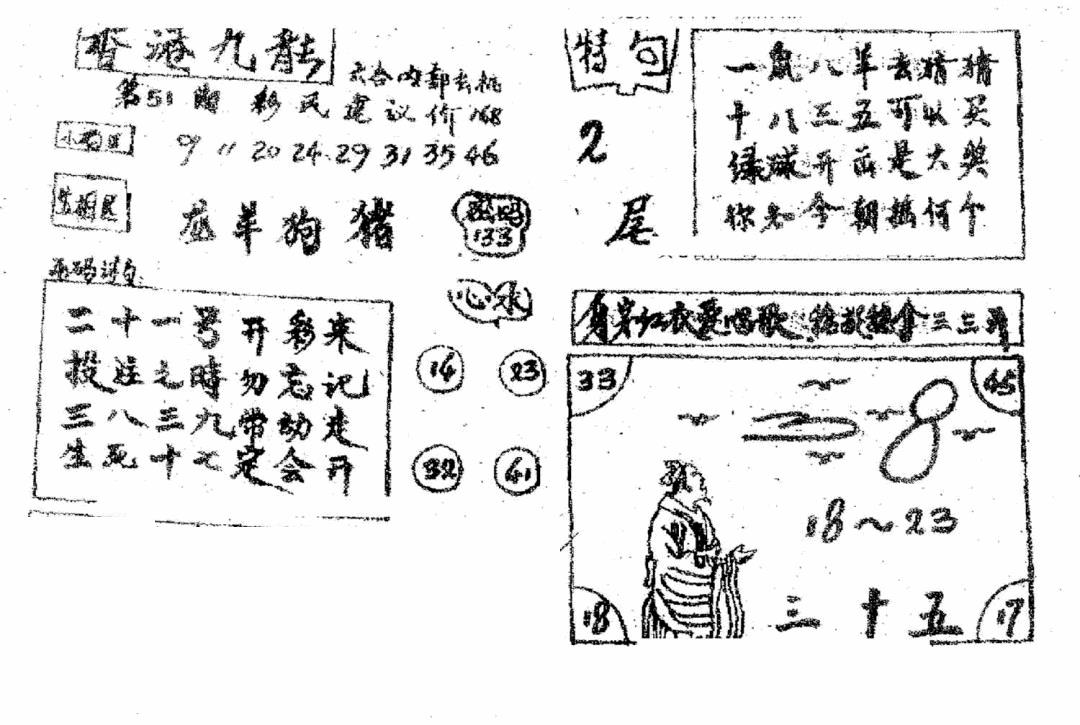 香港九龍
六合内部玄机
第51期 彩民建议价168
小码区
9 11 20 24 29 31 35 46
生肖区
羊狗猪
密码
133
心水
14 23
32 41
二十一号开彩来
投注之時勿忘记
三八三九常动走
生死十七定会开
特句
2
尾
一鼠八羊去猜猜
十八三五可以买
绿球开出是大奖
你知今朝摇何个
身穿红衣爱唱歌
33
45
8
18~23
三十五
18
17